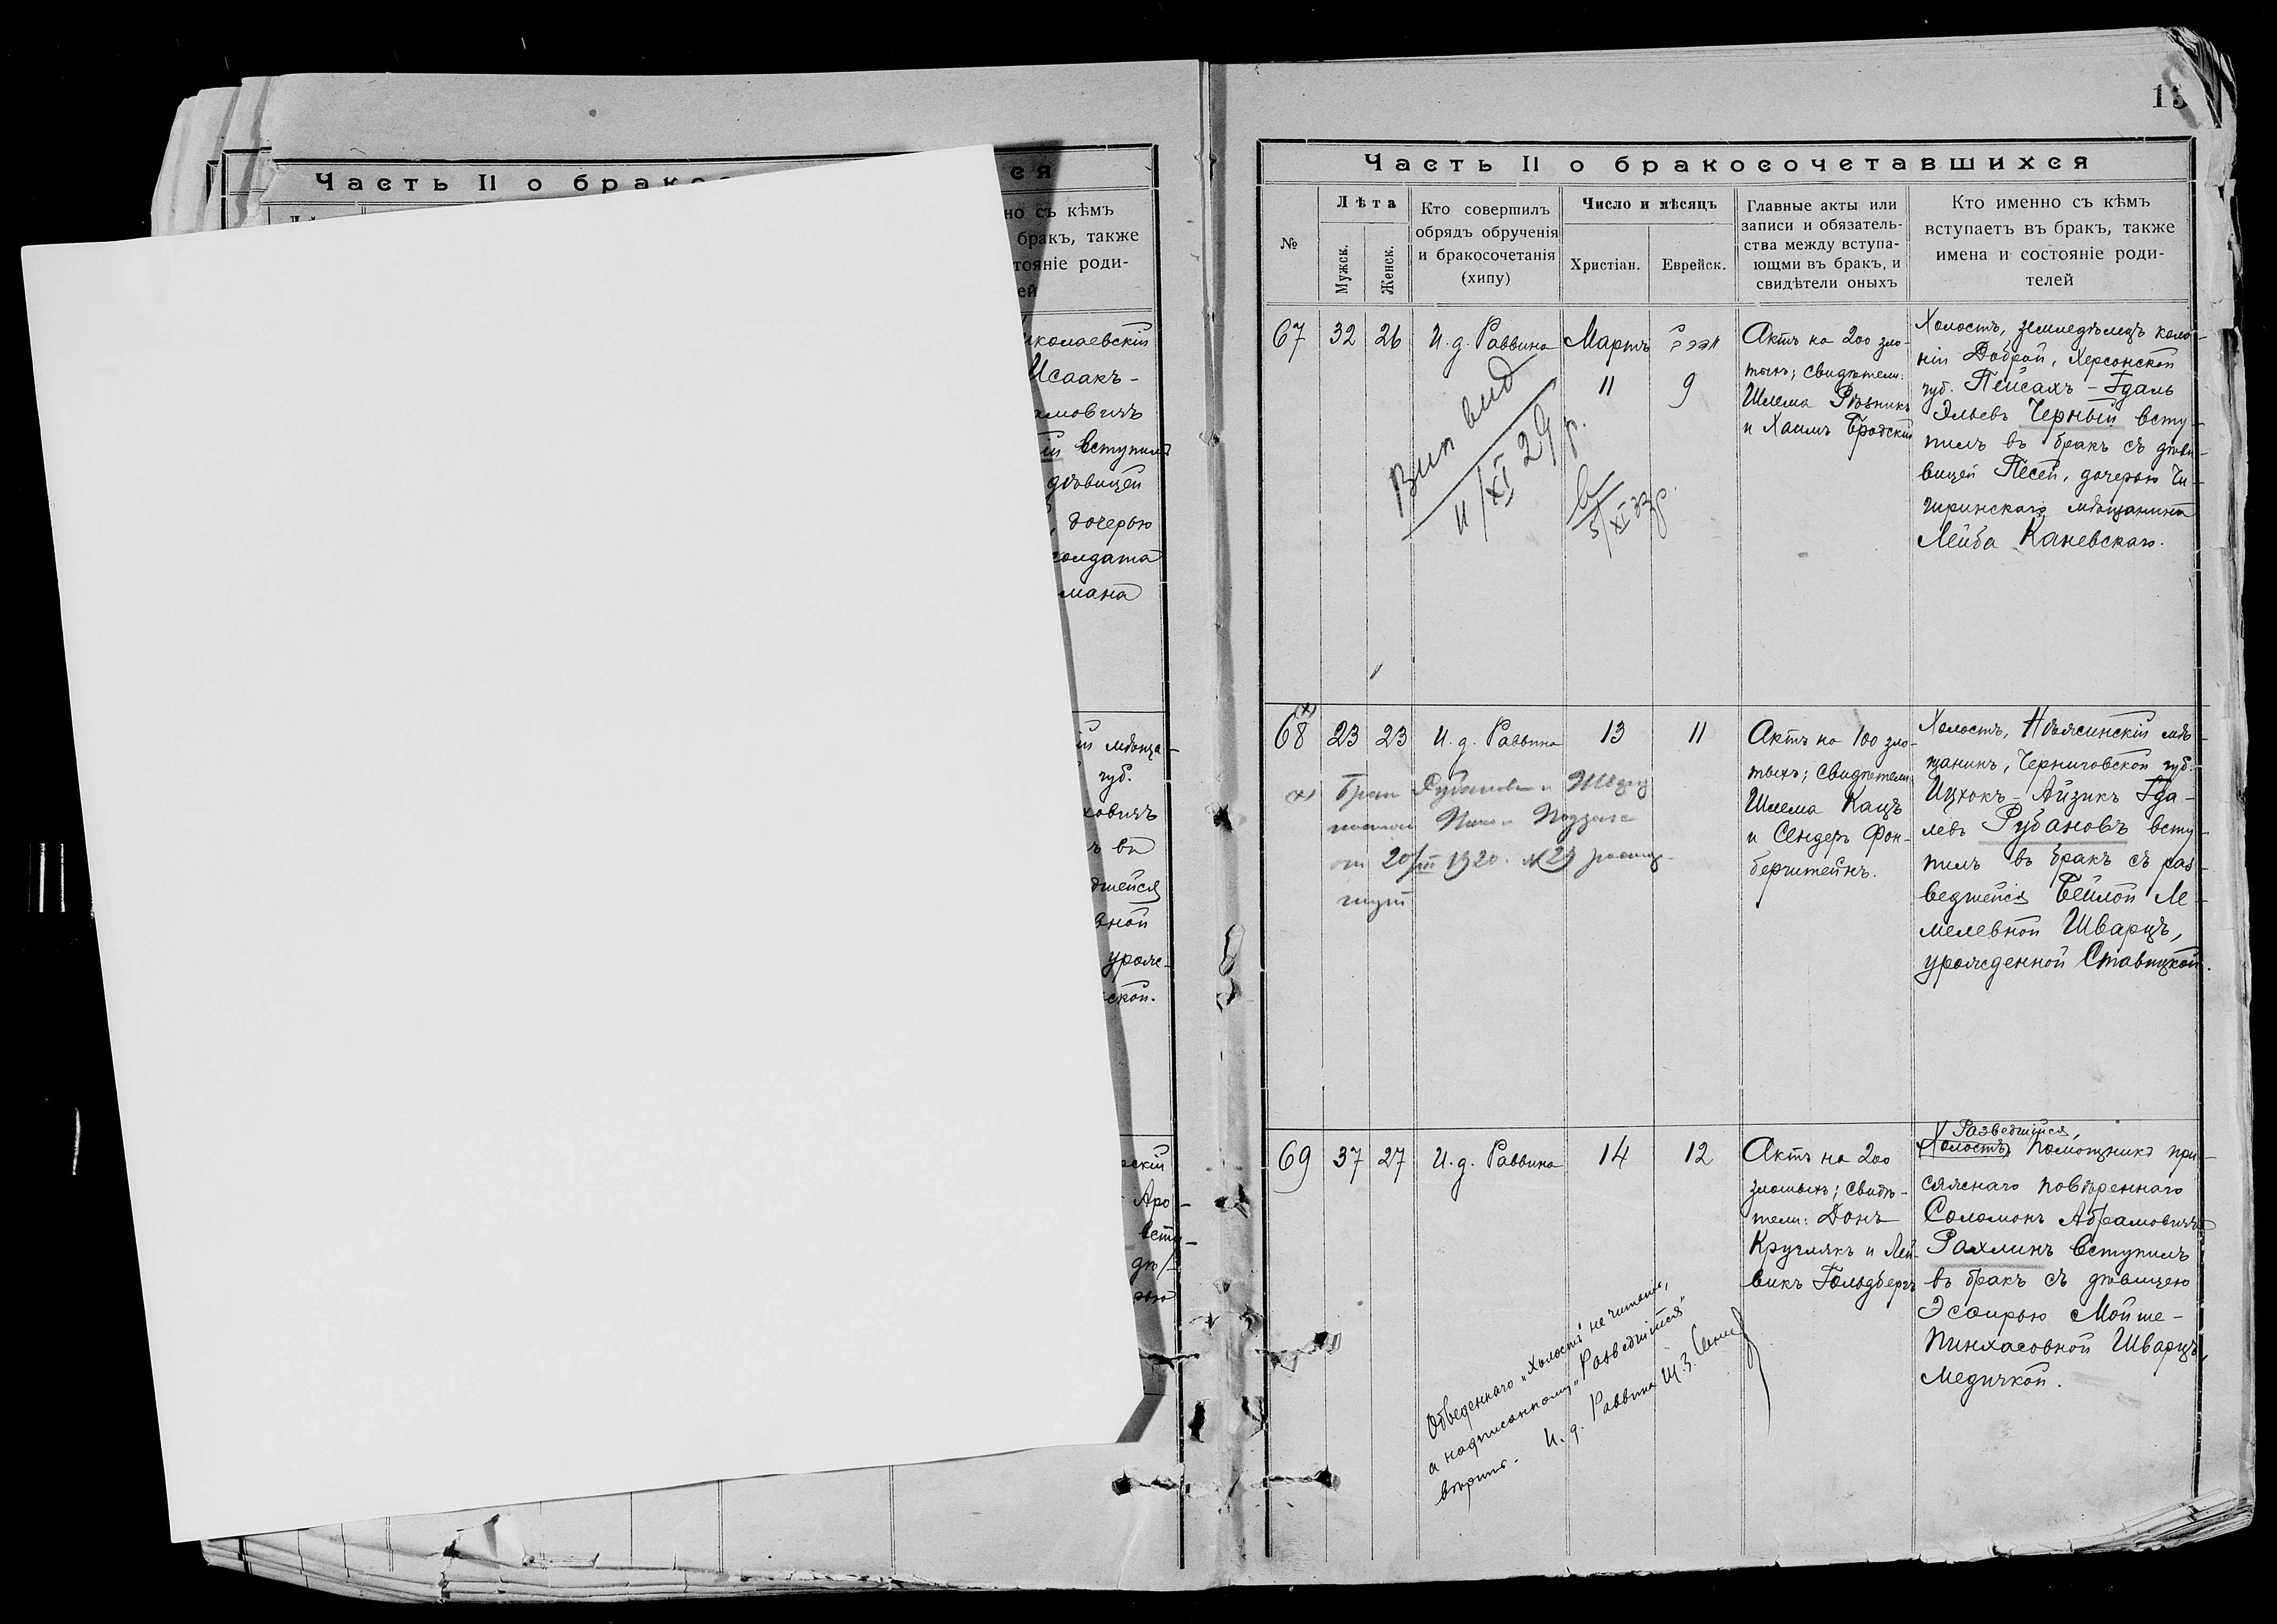 Часть II о брако
ся
но съ кѣмъ
бракъ, также
тояніе роди-
ей
иколаевскій
Исаакъ-
амовичъ
ій вступилъ
дѣвицей
дочерью
солдата
мана
мѣща-
губ.
ховичъ
въ
дшейся
аной
урож-
ской.
скій
Аро-
всту-
дѣ-
рью
Часть II о бракосочетавшихся
№
Лѣта
Мужск.
Женск.
Кто совершилъ
обрядъ обрученія
и бракосочетанія
(хипу)
Число и мѣсяцъ
Христіан.
Еврейск.
Главные акты или
записи и обязатель-
ства между вступа-
ющми въ бракъ, и
свидѣтели оныхъ
Кто именно съ кѣмъ
вступаетъ въ бракъ, также
имена и состояніе роди-
телей
67
32
26
И. д. Раввина
Мартъ
11
9
Актъ на 200 зло-
тыхъ; свидѣтели:
Шлема Рѣзникъ
и Хаимъ Бродскій
Холостъ, земледѣлецъ коло-
ніи Доброй, Херсонской
губ. Пейсахъ-Гдаль
Эльевъ Черный всту-
пилъ въ бракъ съ дѣви-
вицей Песей, дочерью Чи-
гиринскаго мѣщанина
Лейба Каневскаго.
Вип вид
11/XI 29 р.
5/XI 33 р.
68
(х)
23
23
И. д. Раввина
13
11
Актъ на 100 зло-
тыхъ; свидѣтели
Шлема Кацъ
и Сендеръ Фон-
берштейнъ.
Холостъ, Нѣжинскій мѣ-
щанинъ, Черниговской губ.
Ицхокъ-Айзикъ Гда-
левъ Рубановъ всту-
пилъ въ бракъ съ раз-
ведшейся Бейлой Ле-
мелевной Шварцъ,
урожденной Ставицкой.
х) Брак Рубанова и Шварц
от 20/III 1920. №29 растор-
гнут
69
37
27
И. д. Раввина
14
12
Актъ на 200
злотыхъ; свидѣ-
тели: Донъ
Круглякъ и Лей-
викъ Гольдбергъ
Разведшійся,
Холостъ, помощникъ при-
сяжнаго повѣреннаго
Соломонъ Абрамовичъ
Рахлинъ вступилъ
въ бракъ съ дѣвицею
Эсѳирью Мойше-
Пинхасовной Шварцъ,
медичкой.
Обведеннаго „Холостъ" не читать,
а надписанному „Разведшійся"
вѣрить. И. д. Раввина